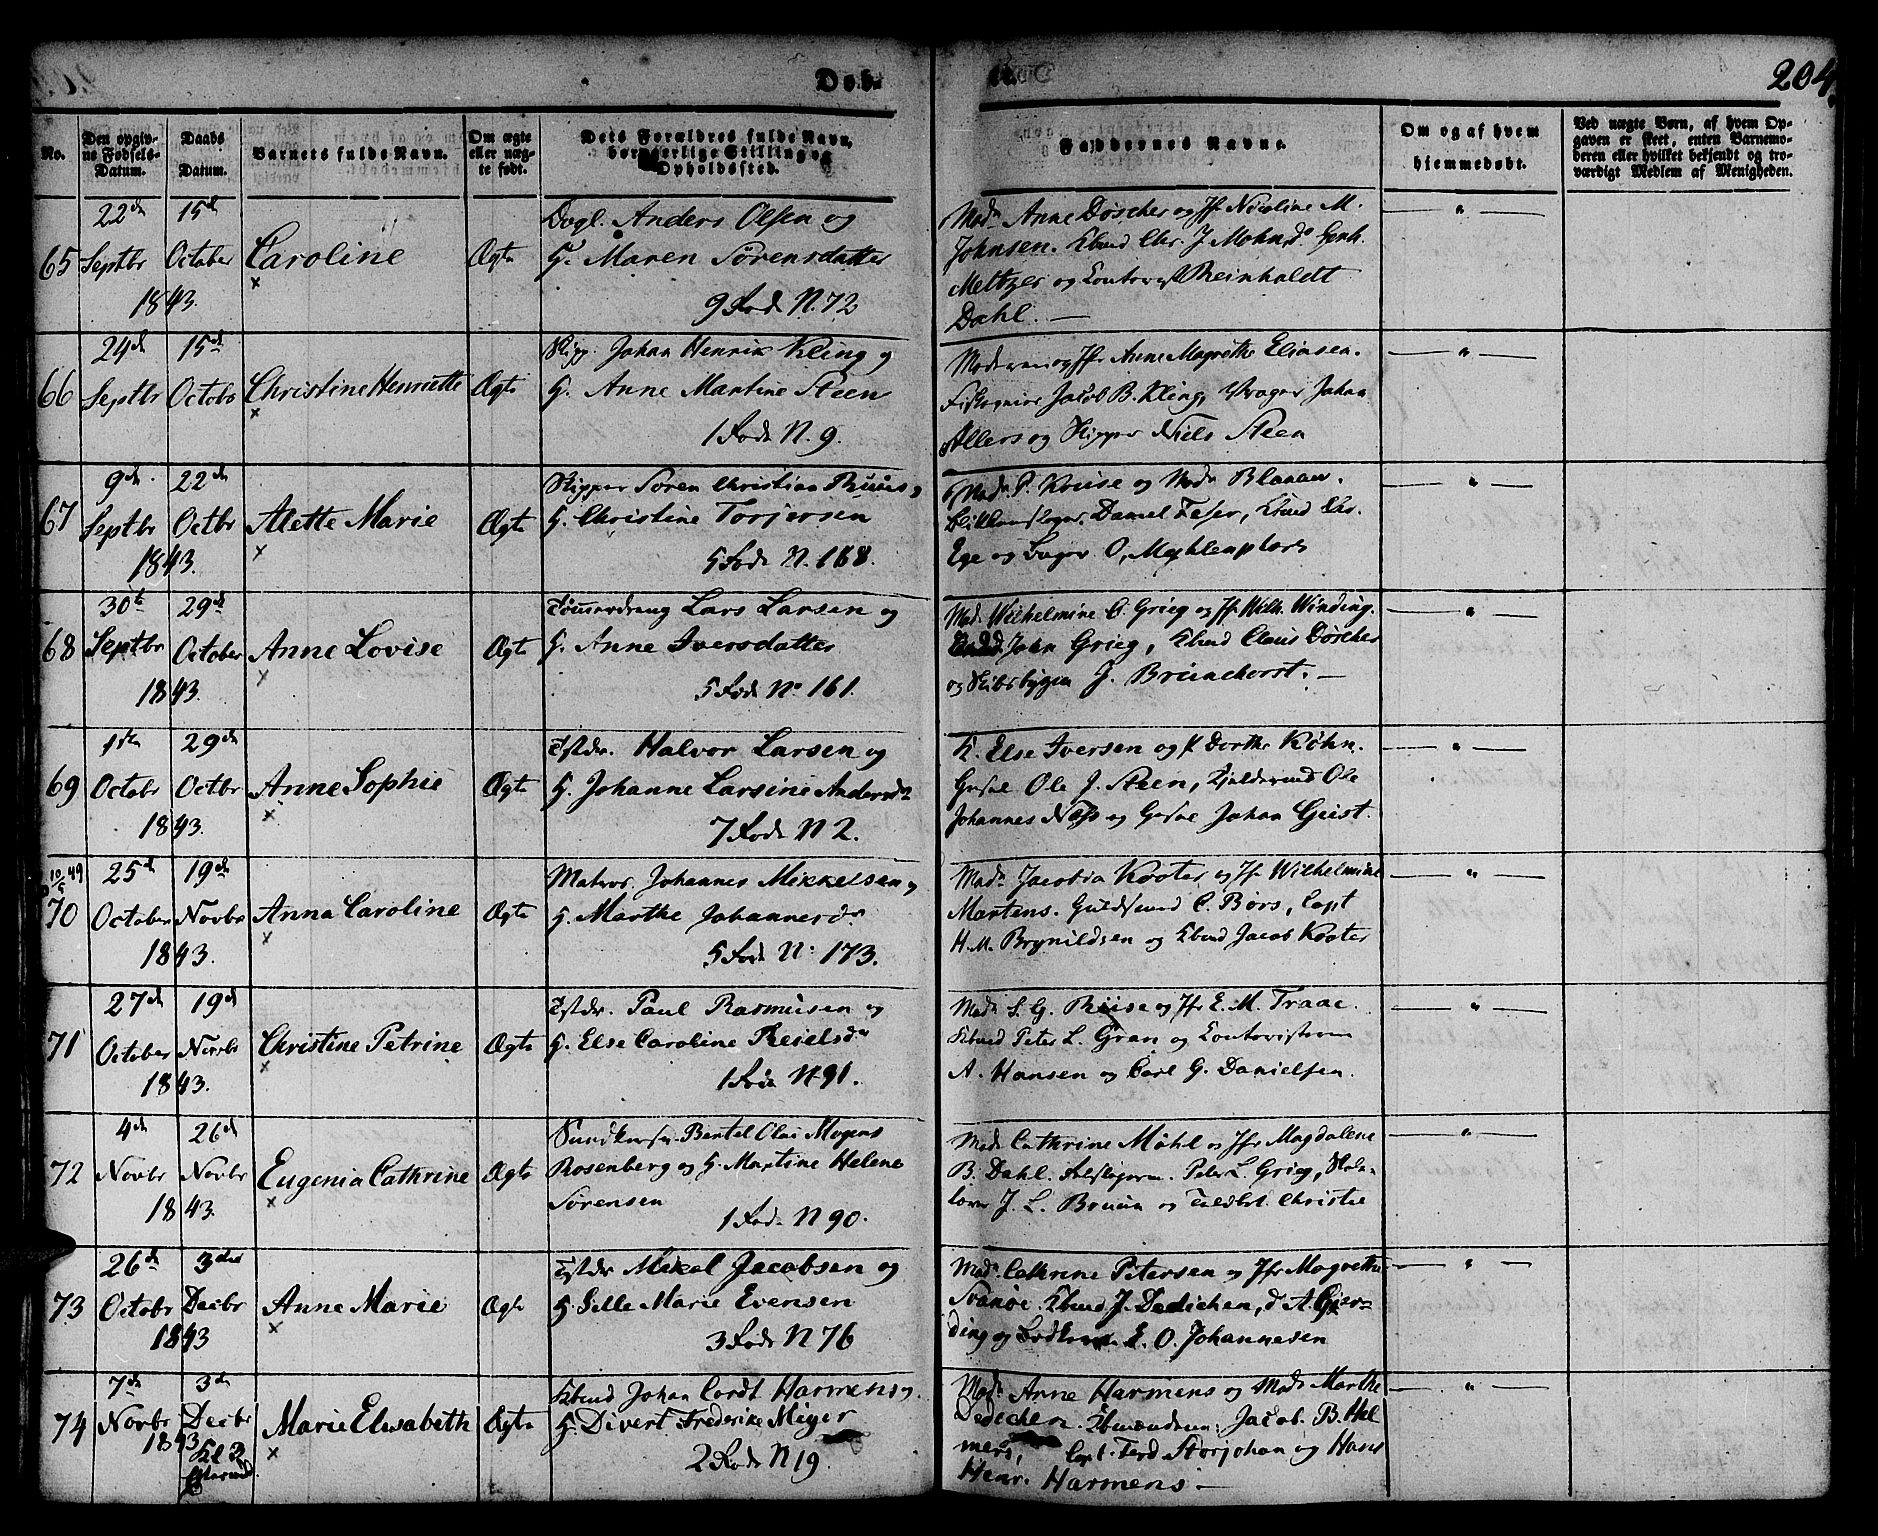 Døb
204.
No.
Den opgivne Fødsels-Datum.
Daabs Datum.
Barnets fulde Navn.
Om ægte eller nægte født.
Dets Forældres fulde Navn, borgerlige Stilling og Opholdssted.
Faddernes Navne.
Om og af hvem hjemmedøbt.
Ved nægte Børn, af hvem Opgaven er skeet, enten Barnemoderen eller hvilket bekjendt og troværdigt Medlem af Menigheden.
65
22de Septbr 1843.
15de October
Caroline
Ægte
Dagl. Anders Olsen og
H. Maren Sørensdatter
9 Rode N. 72
Madm Anne Døscher og Jfr Nicoline M.
Johnsen. Kbmd Chr. J Mohn, do Henh.
Meltzer og Contorist Reinholdt
Dahl. —
66
24de Septbr
15de Octobr
Christine Henriette
Ægte
Skipp. Johan Henrik Kling og
H. Anne Martine Steen
1 Rode N. 9.
Moderen og Jfr Anne Magrethe Eliasen.
Jacob B. Kling, Vrager Johan
Allers og Skipper Niels Steen
67
9de Septbr 1843.
22de Octbr
Alette Marie
Ægte
Skipper Søren Christian Ruus og
H. Christine Torjersen
5 Rode N. 168.
Madm P. Kruse og Madm Blaauw.
Daniel Feser, Kbmd Chr.
Ege og O. Mechlenphors
68
30te Septbr 1843.
29de October
Anne Lovise
Ægte
Tømmerdreng Lars Larsen og
H. Anne Iversdatter
5 Rode No 161.
Mad. Wilhelmine C. Grieg og Jfr Wilh. Winding.
John Grieg, Kbmd Claus Døscher
og Skibsbygm J. Brunchorst. —
69
1ste Octobr 1843.
29de Octbr
Anne Sophie
Ægte
Halvor Larsen og
H. Johanne Larsine Andersdr
7 Rode N 2.
K. Else Iversen og P. Dorthe Køhn.
Ole J. Steen, Ole
Johannes Næss og Johan Geist.
10/5 49
70
25de October 1843.
19de Novbr
Anna Caroline
Ægte
Matros. Johannes Mikkelsen og
H. Marthe Johannesdr
5 Rode N. 173.
Madm Jacobia Kooter og Jfr Wilhelmine
Martens. Guldsmed C. Børs, Capt
H. M. Brynildsen og Kbmd Jacob Kooter
71
27de October 1843.
19de Novbr
Christine Petrine
Ægte
Paul Rasmusen og
H. Else Caroline
1 Rode N 91.
Madm S. G. Ruse og Jfr E. M. Traae.
Kbmd Peter L. Gran og Contoristerne
A. Hansen og Carl G. Danielsen.
72
4de Novbr 1843.
26de Novbr
Eugenia Cathrine
Ægte
Bertel Olai Mogens
Rosenberg og H. Martine Helene
Sørensen
1 Rode N 90.
Madm Cathrine Møhl og Jfr Magdalene
B. Dahl. Peter L. Grieg,
J. L. Bruun og Christie
73
26de Octobr 1843
3die Decbr
Anne Marie
Ægte
Mikal Jacobsen og
H. Sille Marie Evensen
3 Rode N 76
Madm Cathrine Petersen og Jfr Magrethe
Svanøe. Kbmd J. Dedichen, d. A. Gjer-
ding og E. O. Johannesen
74
7de Novbr 1843
3de Decbr
Kl 3
Marie Elisabeth
Ægte
Kbmd Johan Cordt Harmens og
H. Divert Frederike Meyer
2 Rode N 19.
Madm Anne Harmens og Madm Marthe
Dedichen. Kbmændene: Jacob. B. Hel
mers, Capt. Ferd Storjohan og Hans
Henr. Harmens —